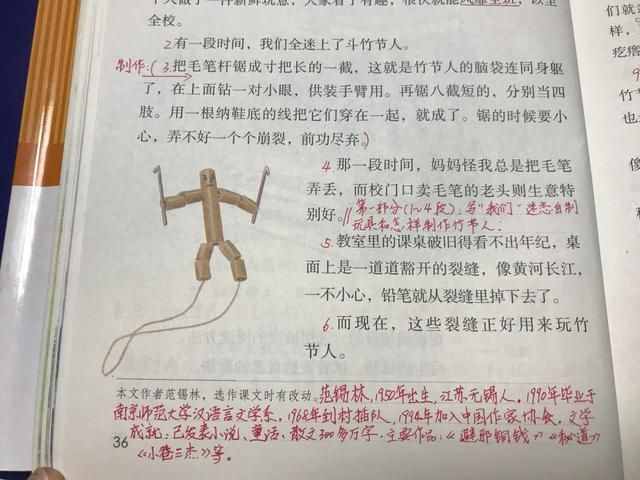 个人做了一件新鲜玩意,大家看了有趣,很快就能风靡全班,以至
全校。
2有一段时间,我们全迷上了斗竹节人。
制作:(3.把毛笔杆锯成寸把长的一截,这就是竹节人的脑袋连同身躯
了,在上面钻一对小眼,供装手臂用。再锯八截短的,分别当四
肢。用一根纳鞋底的线把它们穿在一起,就成了。锯的时候要小
心,弄不好一个个崩裂,前功尽弃。)
4那一段时间,妈妈怪我总是把毛笔
弄丢,而校门口卖毛笔的老头则生意特
别好。//第一部分(1~4段):写“我们”迷恋自制
玩具和怎样制作竹节人.
5.教室里的课桌破旧得看不出年纪,桌
面上是一道道豁开的裂缝,像黄河长江,
一不小心,铅笔就从裂缝里掉下去了。
6.而现在,这些裂缝正好用来玩竹
节人。
本文作者范锡林,选作课文时有改动。范锡林,1950年出生,江苏无锡人。1990年毕业于
南京师范大学汉语言文学系。1968年到村插队,1994年加入中国作家协会。文学
成就:已发表小说、童话、散文300多万字。主要作品:《避邪铜钱》《秘道》
《小巷三杰》等。
36
们就
样,
疙瘩